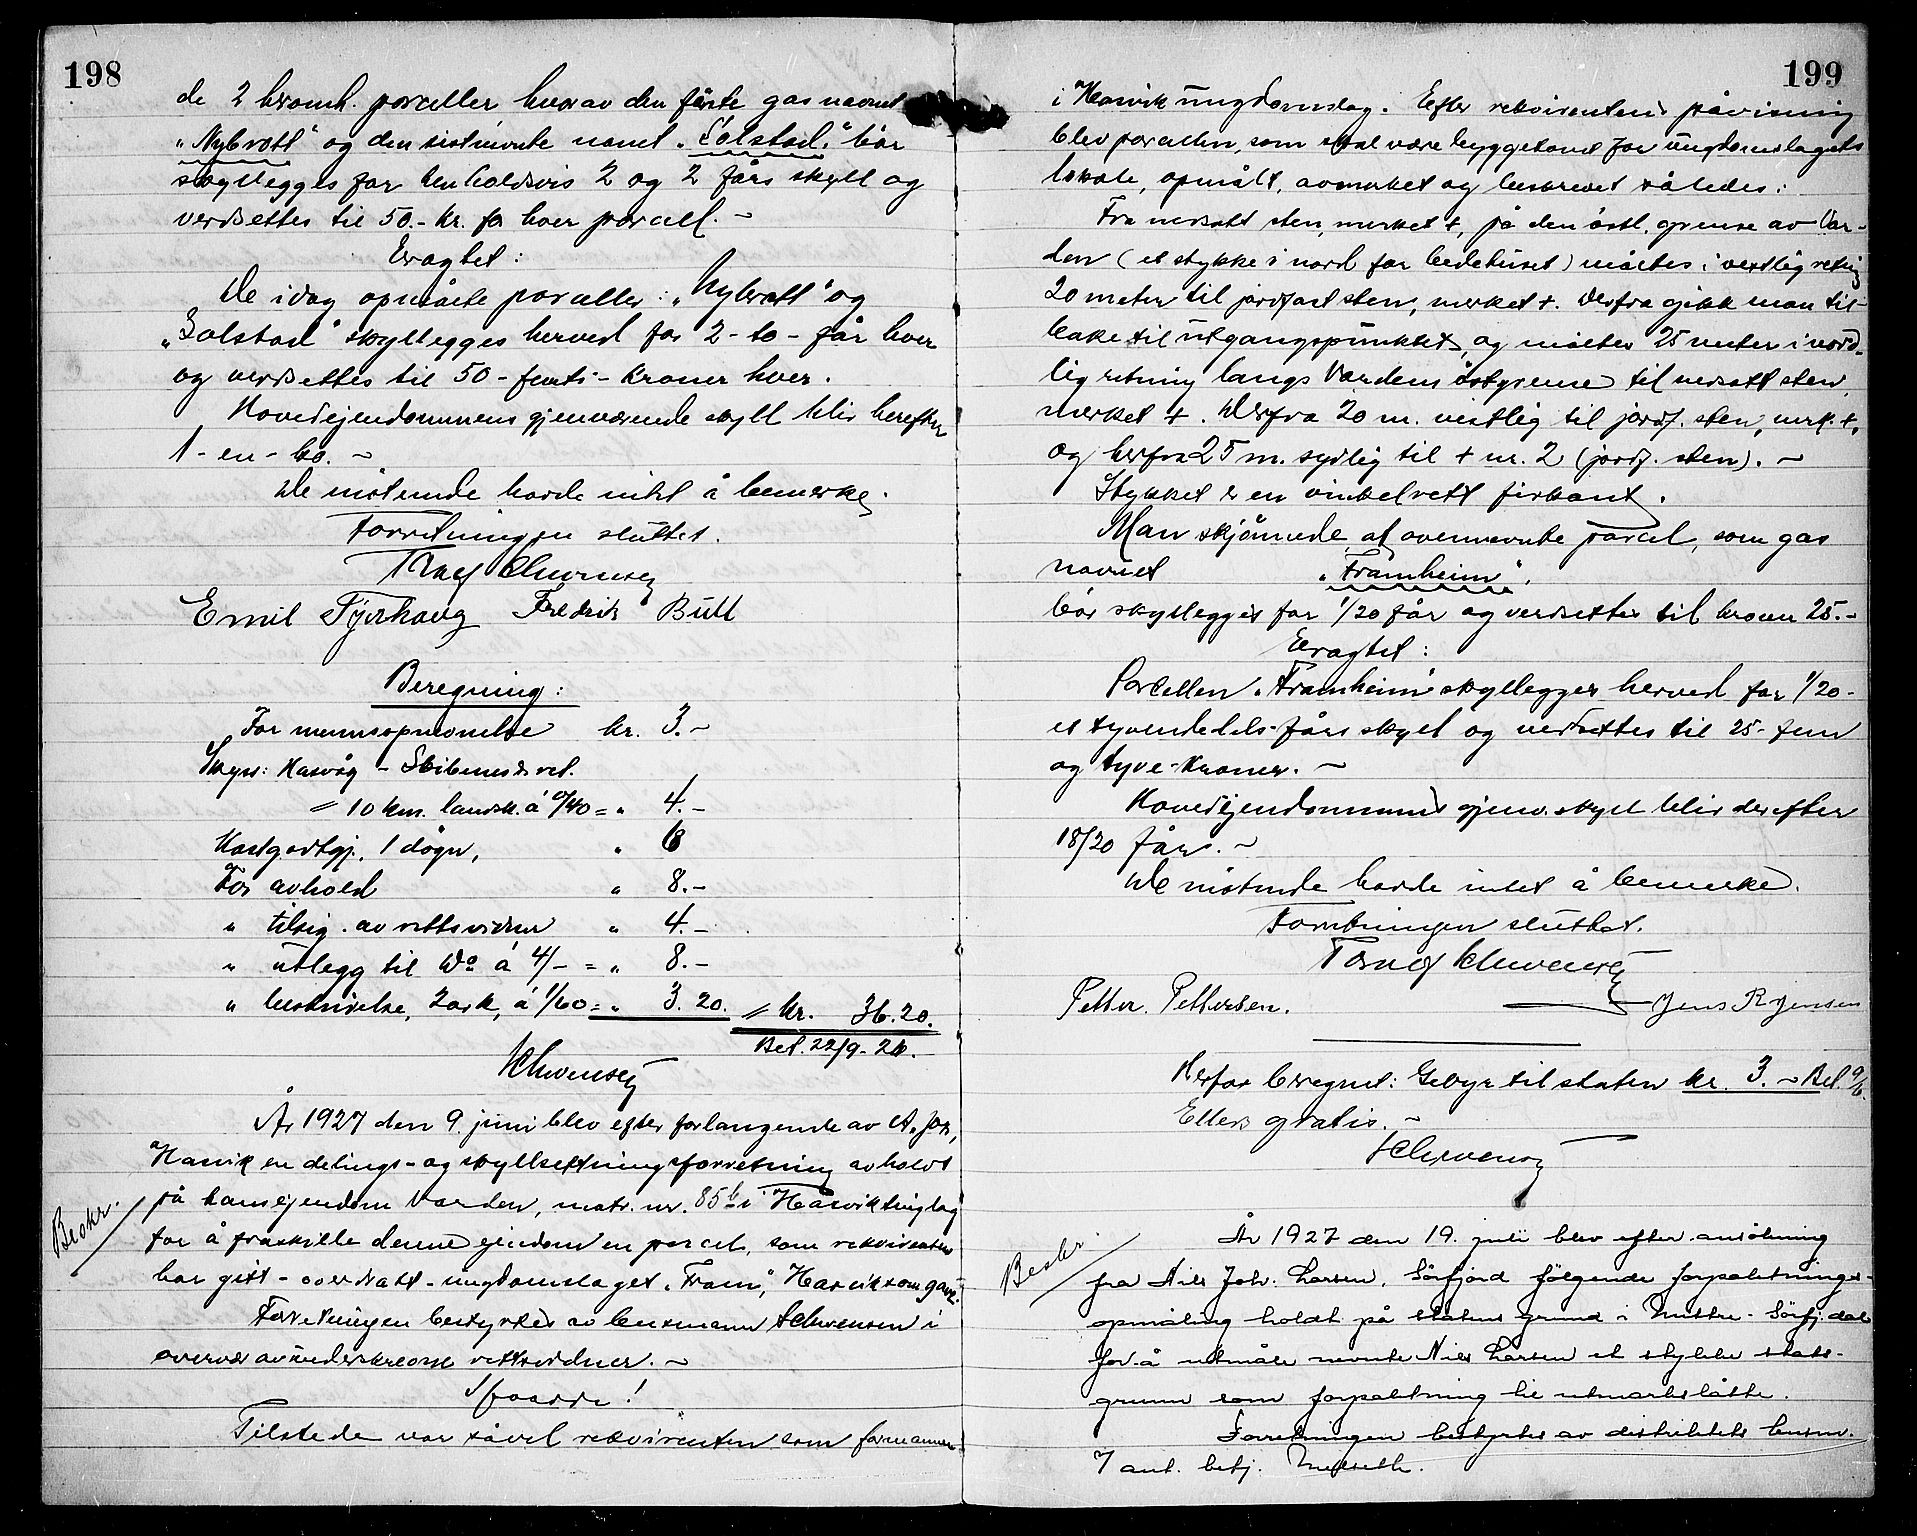 198
de 2 bromh. parceller hvorav den første gas navnet
„Nybrott" og den sistnevnte navnet „Solstad." bør
skyllegges for henholdsvis 2 og 2 førs skyll og
verdsettes til 50.- kr. for hver parcell. -
Eragtet:
De idag opmålte parceller: „Nybrott" og
„Solstad" skyllegges herved for 2 - to - før hver
og verdsettes til 50 - femti - kroner hver.
Hovedejendommens gjenværende skyll blir herefter
1 - en - ko. -
De møtende havde intet å bemerke.
Forretningen sluttet.
Schwensen
Emil Tjørhaug Fredrik Bull
Beregning:
For mennsopnevnelse kr. 3.-
Skyss: Hasvåg - Skibnesdvet.
= 10 km. landsk. á 0/40 = „ 4.-
Kostgodtgj. 1 døgn, „ 6
For avhold „ 8.-
„ tilsig. av rettsvidner „ 4.-
„ utlegg til Do á 4/- = „ 8.-
„ beskrivelse, 2 ark, á 1/60 = „ 3.20. = kr. 36.20.
Bet. 22/9-26.
Schwensen
År 1927 den 9. juni blev efter forlangende av A. Joh.
Hasvik en delings- og skyllsettningsforretning avholdt
Beskr.
på hans ejendom Varden, matr. nr. 85b i Hasvik tinglag
for å fraskille denne ejendom en parcel, som rekvirenten
har gitt - overdratt - ungdomslaget „Fram", Hasvik som gave.
Forretningen bestyrtes av lensmann Schwensen i
overvær av underskrevne rettsvidner. -
Spaadde!
Tilstede var såvel rekvirenten som formannen
199
i Hasvik ungdomslag. Efter rekvirentens påvisning
blev parcellen, som skal være byggetomt for ungdomslagets
lokale, opmålt, avmerket og beskrevet således:
Fra nedsatt sten, merket +, på den østl. grense av Var-
den (et stykke i nord for bedehuset) måltes i vestlig retning
20 meter til jordfast sten, merket +. Derfra gikk man til-
bake til utgangspunktet, og måltes 25 meter i nord-
lig retning langs Vardens østgrense til nedsatt sten,
merket +. Derfra 20 m. vestlig til jordf. sten, merk. +,
og herfra 25 m. sydlig til + nr. 2 (jordf. sten). -
Stykket er en vinkelrett firkant.
Man skjønnede, at ovennevnte parcel, som gas
navnet „Framheim",
bør skyllegges for 1/20 før og verdsettes til kroner 25.-
Eragtet:
Parcellen „Framheim" skyllegges herved for 1/20 -
et tyvendedels - førs skyld og verdsettes til 25 - fem
og tyve - kroner. -
Hovedejendommens gjenv. skyld blir derefter
18/20 før. -
De møtende havde intet å bemerke.
Forretningen sluttet.
Schwensen
Petter Pettersen. Jens R Jensen
Herfor beregnet: Gebyr til staten kr. 3.- Bet. 9/6.
Ellers gratis. -
Schwensen
År 1927 den 19. juli blev efter ansökning
Beskr.
fra Nils Joh. Larsen, Sörfjord følgende forpaktnings-
opmåling holdt på statens grund i Sörfj.dal
for å utmåle nevnte Nils Larsen et stykke stats-
grunn som forpaktning til utmarksslåtte.
Forretningen bestyrtes av distriktets lensm.